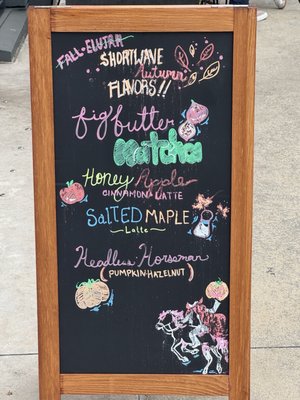 SHORTWAVE
Autumn
FLAVORS!!
fig butter
Matcha
Honey Apple
CINNAMON LATTE
SALTED MAPLE
~Latte~
Headless Horseman
(PUMPKIN-HAZELNUT)